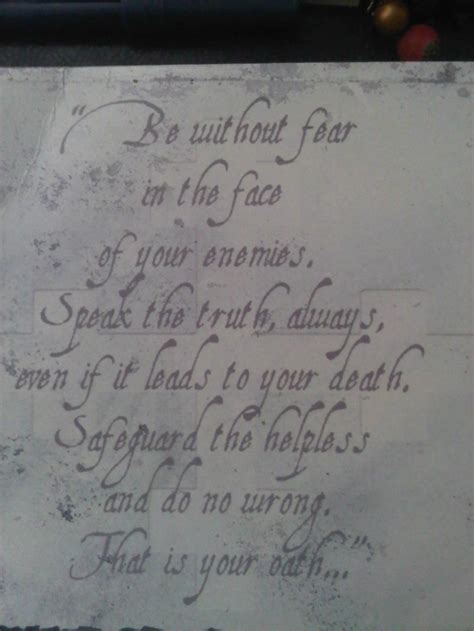 "Be without fear
in the face
of your enemies.
Speak the truth, always,
even if it leads to your death.
Safeguard the helpless
and do no wrong.
That is your oath..."